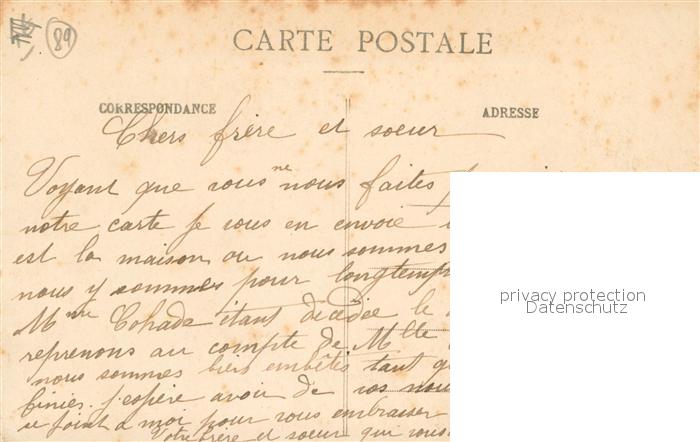 89
CARTE POSTALE
CORRESPONDANCE
ADRESSE
Chers frère et soeur
Voyant que vous ne nous faites
notre carte je vous en envoie
est la maison ou nous sommes
nous y sommes pour longtemps
Mme Cohade étant décédée le
reprenons au compte de Mlle
nous sommes bien embêtés tant
finies j'espère avoir de vos
se joint a moi pour vous embrasser
Votre frère et soeur qui vous
privacy protection
Datenschutz